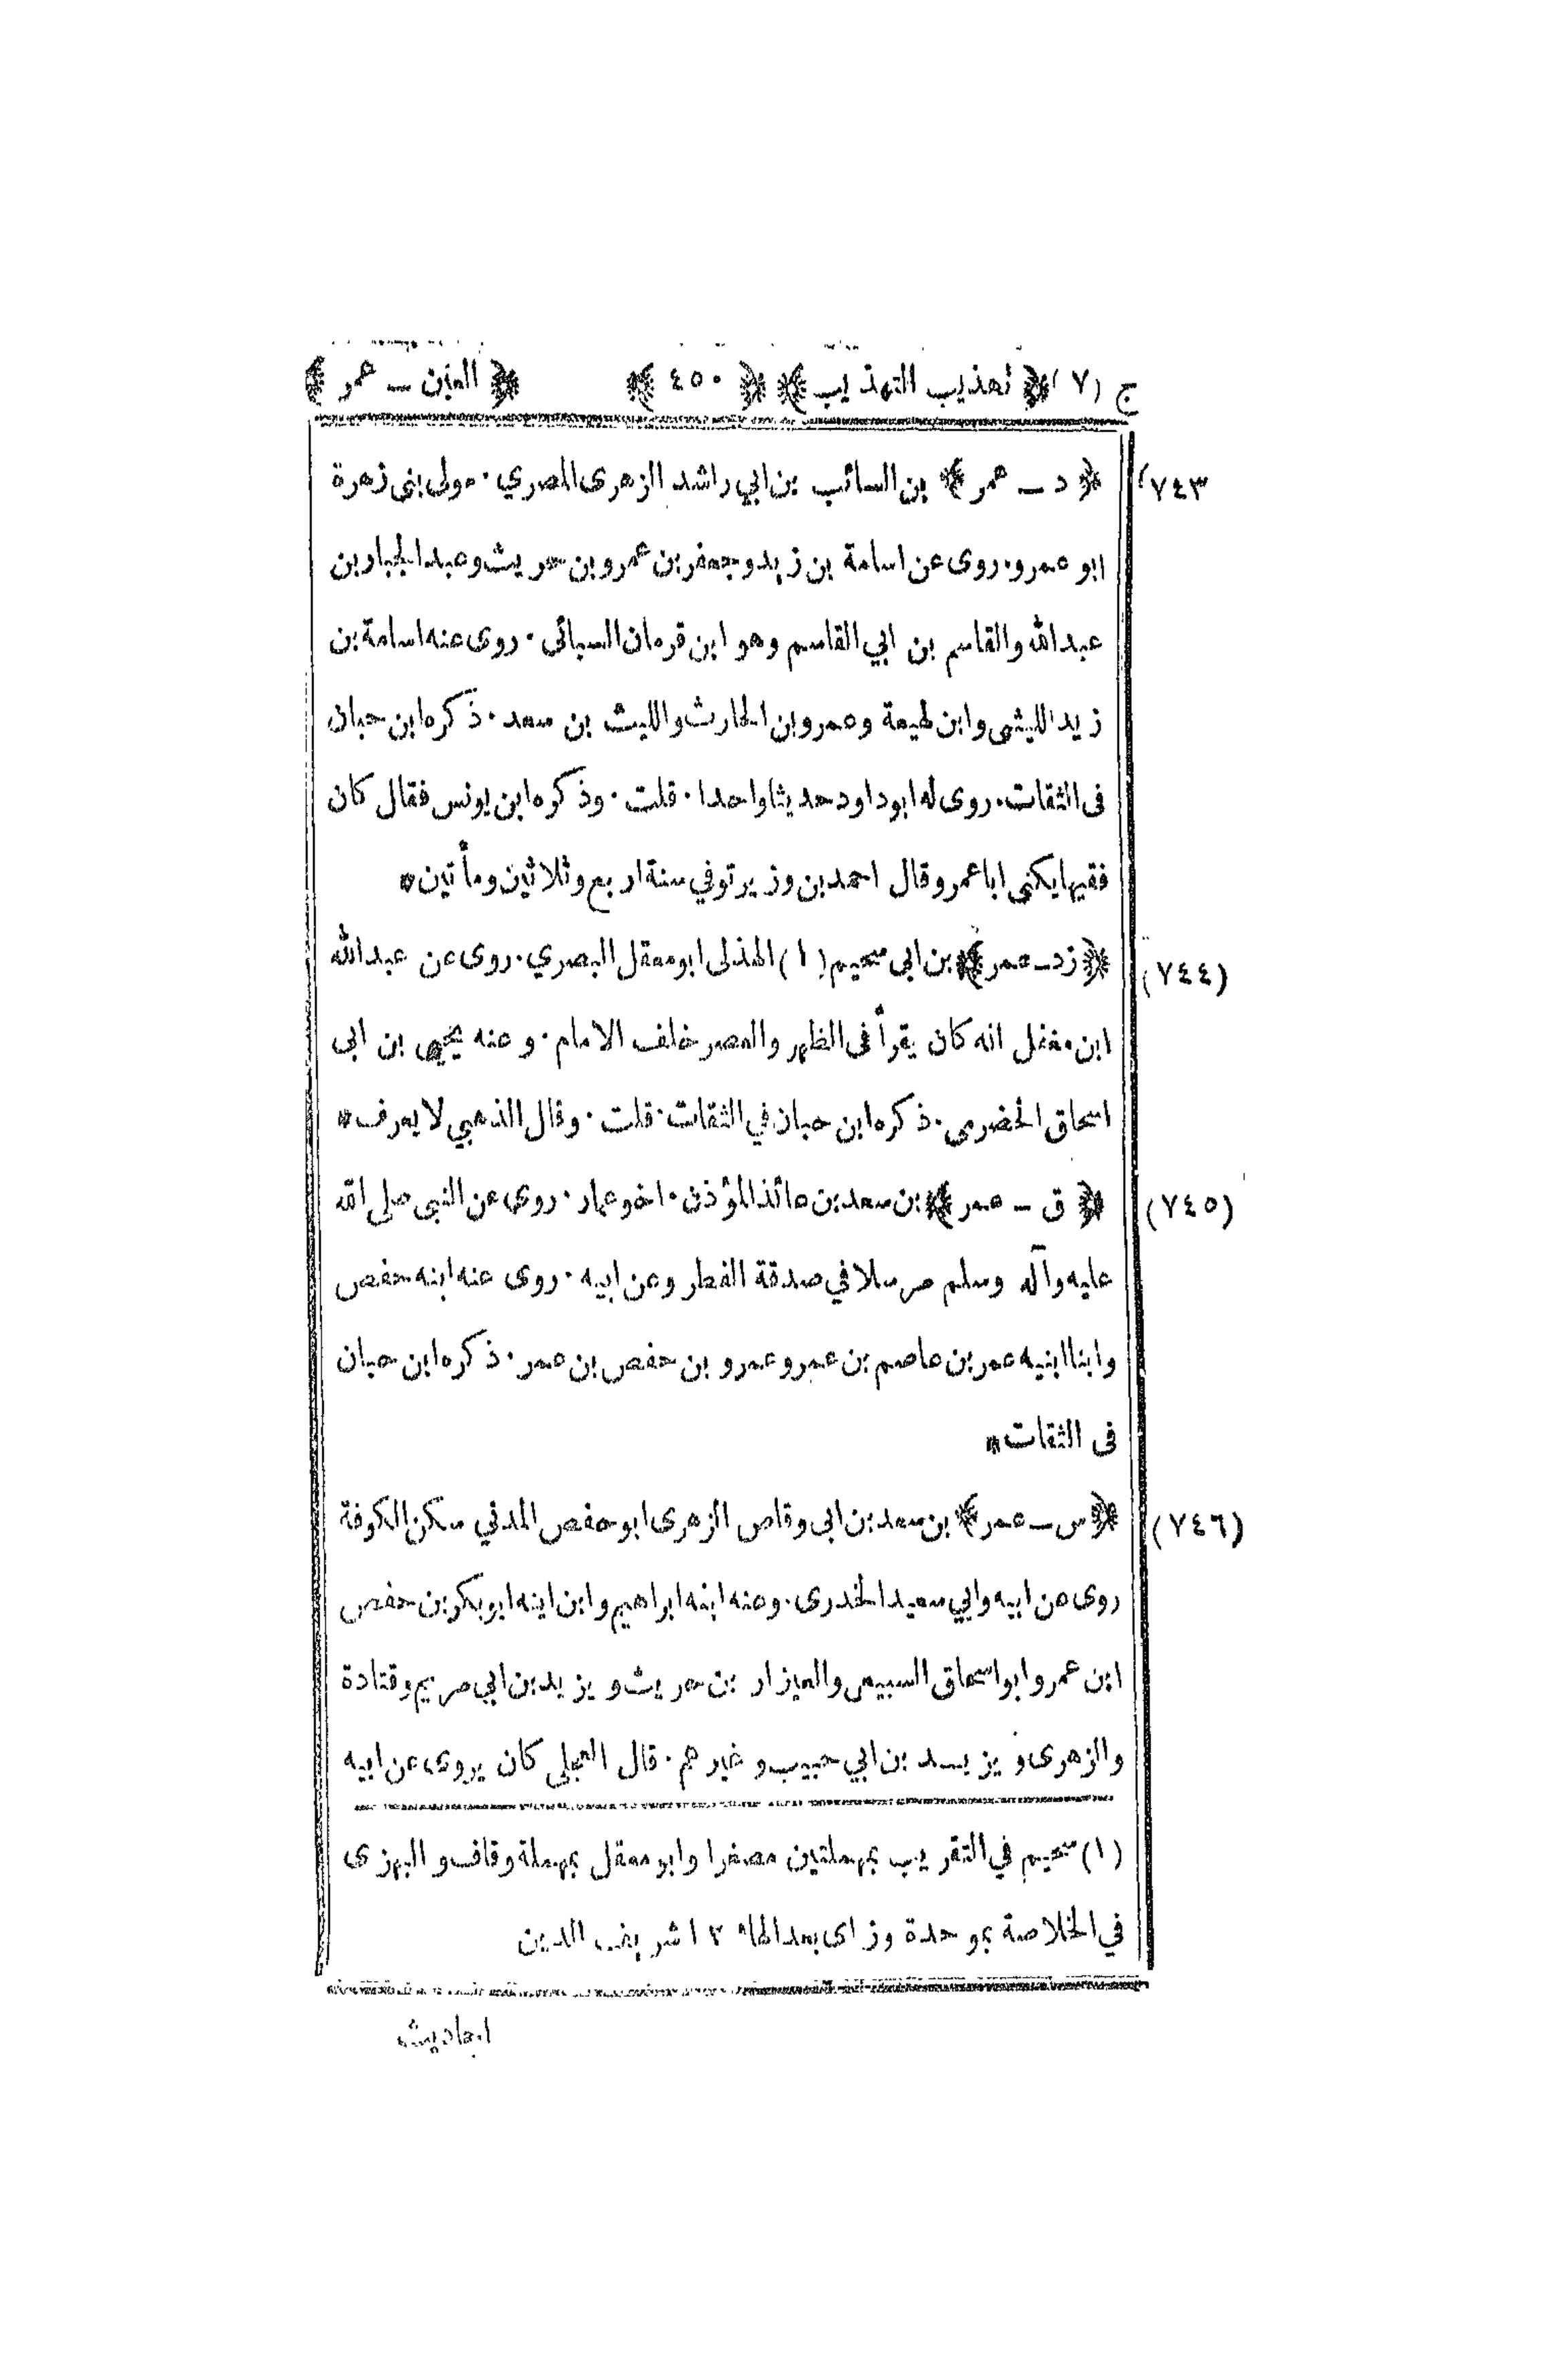 ج (٧) ﴿ تهذيب التهذيب ﴾ ﴿ ٤٥٠ ﴾ ﴿ العين ـ عمر ﴾
(٧٤٣ ﴿ د ـ عمر ﴾ بن السائب بن ابي راشد الزهرى المصري . مولى بنى زهرة
ابو عمرو . روى عن اسامة بن زيد وجعفر بن عمرو بن حريث وعبد الجبار بن
عبد الله والقاسم بن ابي القاسم وهو ابن قرمان السبائى . روى عنه اسامة بن
زيد الليثى وابن لهيعة وعمرو بن الحارث والليث بن سعد . ذكره ابن حبان
فى الثقات . روى له ابو داود حديثا واحدا . قلت . وذكره ابن يونس فقال كان
فقيها يكنى ابا عمر وقال احمد بن وزير توفي سنة اربع وثلاثين ومأتين *
(٧٤٤) ﴿ زد ـ عمر ﴾ بن ابى سحيم (١) الهذلى ابو معقل البصري . روى عن عبد الله
ابن مغفل انه كان يقرأ فى الظهر والعصر خلف الامام . وعنه يحيى بن ابى
اسحاق الحضرمى . ذكره ابن حبان في الثقات . قلت . وقال الذهبي لا يعرف *
(٧٤٥) ﴿ ق ـ عمر ﴾ بن سعد بن عائذ المؤذن . اخو عمار . روى عن النبى صلى الله
عليه وآله وسلم مرسلا في صدقة الفطر وعن ابيه . روى عنه ابنه حفص
وابنا ابنيه عمر بن عاصم بن عمر وعمرو بن حفص بن عمر . ذكره ابن حبان
فى الثقات *
(٧٤٦) ﴿ س ـ عمر ﴾ بن سعد بن ابى وقاص الزهرى ابو حفص المدني سكن الكوفة
روى عن ابيه وابي سعيد الخدرى . وعنه ابنه ابراهيم وابن اينه ابو بكر بن حفص
ابن عمر وابو اسحاق السبيعى والعيزار بن حريث ويزيد بن ابي مريم وقتادة
والزهرى ويزيد بن ابي حبيب وغيرهم . قال العجلى كان يروى عن ابيه
(١) سحيم في التقريب بمهملتين مصغرا وابو معقل بمهملة وقاف والبهزى
في الخلاصة بموحدة وزاى بعد الهاء ١٢ شريف الدين
احاديث